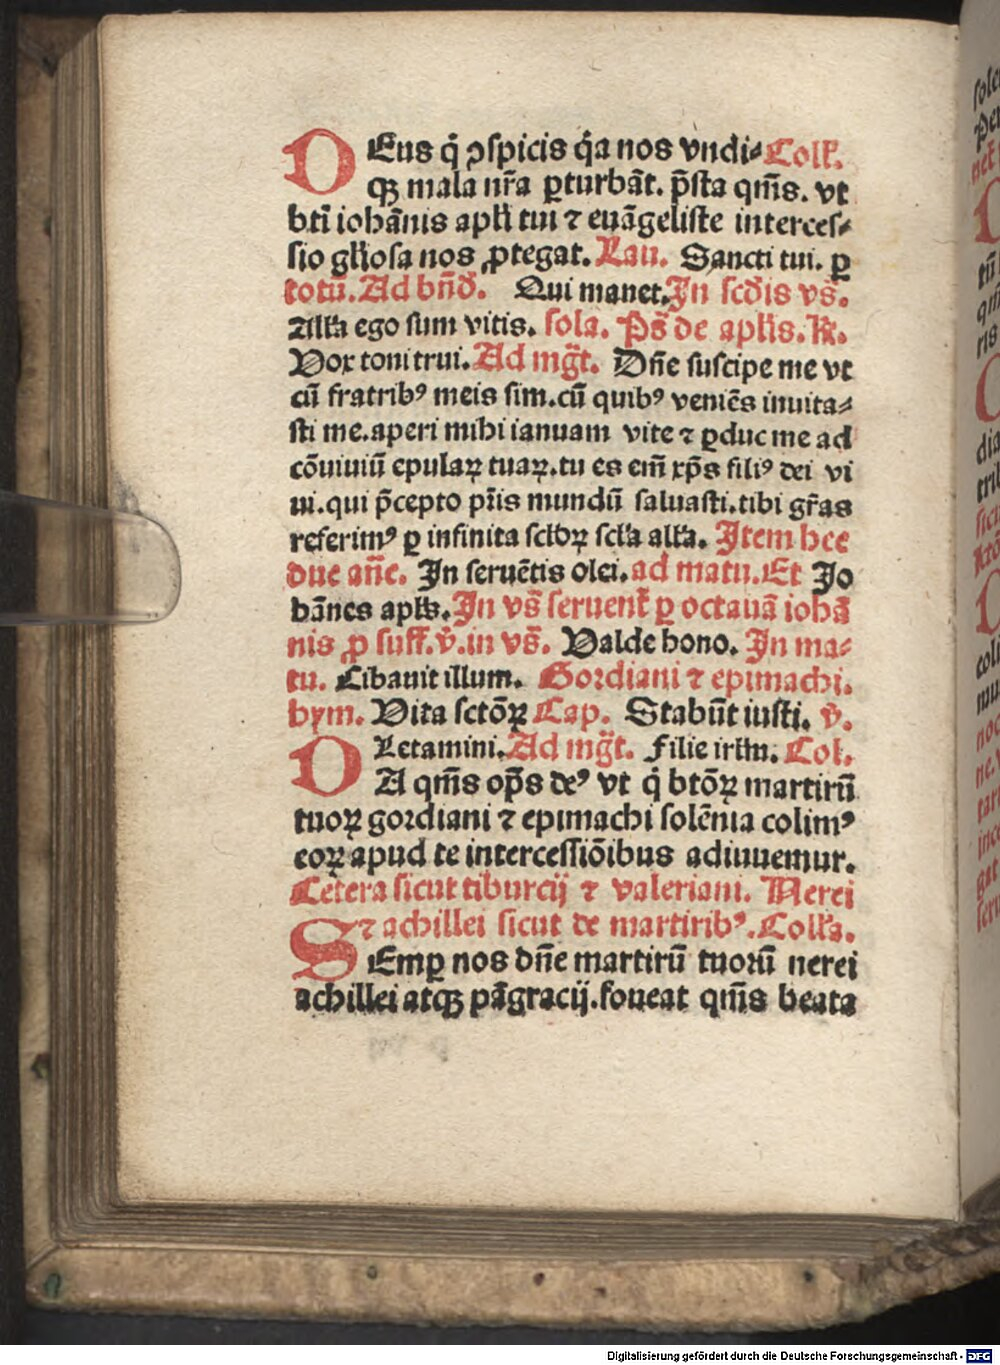 DEus q̄ ꝯspicis q̄a nos vndi⸗Coll'.
qꝫ mala nr̄a ꝑturbāt. p̄sta qm̄s. vt
bt̄i iohānis apl'i tui ⁊ euāgeliste interces⸗
sio gl'iosa nos ꝓtegat. Lau. Sancti tui. ꝑ
totū. Ad bn̄d̄. Qui manet. In scd̄is vs̄.
All'a ego sum vitis. sola. Ps̄ de apl'is. R'.
Vox tonitrui. Ad mḡt. Dn̄e suscipe me vt
cū fratribꝰ meis sim. cū quibꝰ veniēs inuita⸗
sti me. aperi mihi ianuam vite ⁊ ꝑduc me ad
cōuiuiū epulaꝝ tuaꝝ. tu es em̄ xp̄s filiꝰ dei vi
ui. qui p̄cepto pr̄is mundū saluasti. tibi gr̄as
referimꝰ ꝑ infinita scl'oꝝ scl'a all'a. Item hee
due an̄e. In feruētis olei. ad matu. Et Jo
hānes apl's. In vs̄ feruent' ꝑ octauā iohā
nis ꝓ suff. v̄. in vs̄. Valde hono. In ma⸗
tu. Cibauit illum. Gordiani ⁊ epimachi.
hym. Vita sctōꝝ Cap. Stabūt iusti. v̄.
Letamini. Ad mḡt. Filie irl'm. Col.
DA qm̄s op̄s deꝰ vt q̄ btōꝝ martirū
tuoꝝ gordiani ⁊ epimachi solēnia colimꝰ
eoꝝ apud te intercessiōibus adiuuemur.
Cetera sicut tiburcij ⁊ valeriani. Nerei
⁊ achillei sicut de martiribꝰ. Coll'a.
SEmꝑ nos dn̄e martirū tuoꝝū nerei
achillei atqꝫ pāgracij. foueat qm̄s beata
Digitalisierung gefördert durch die Deutsche Forschungsgemeinschaft - DFG